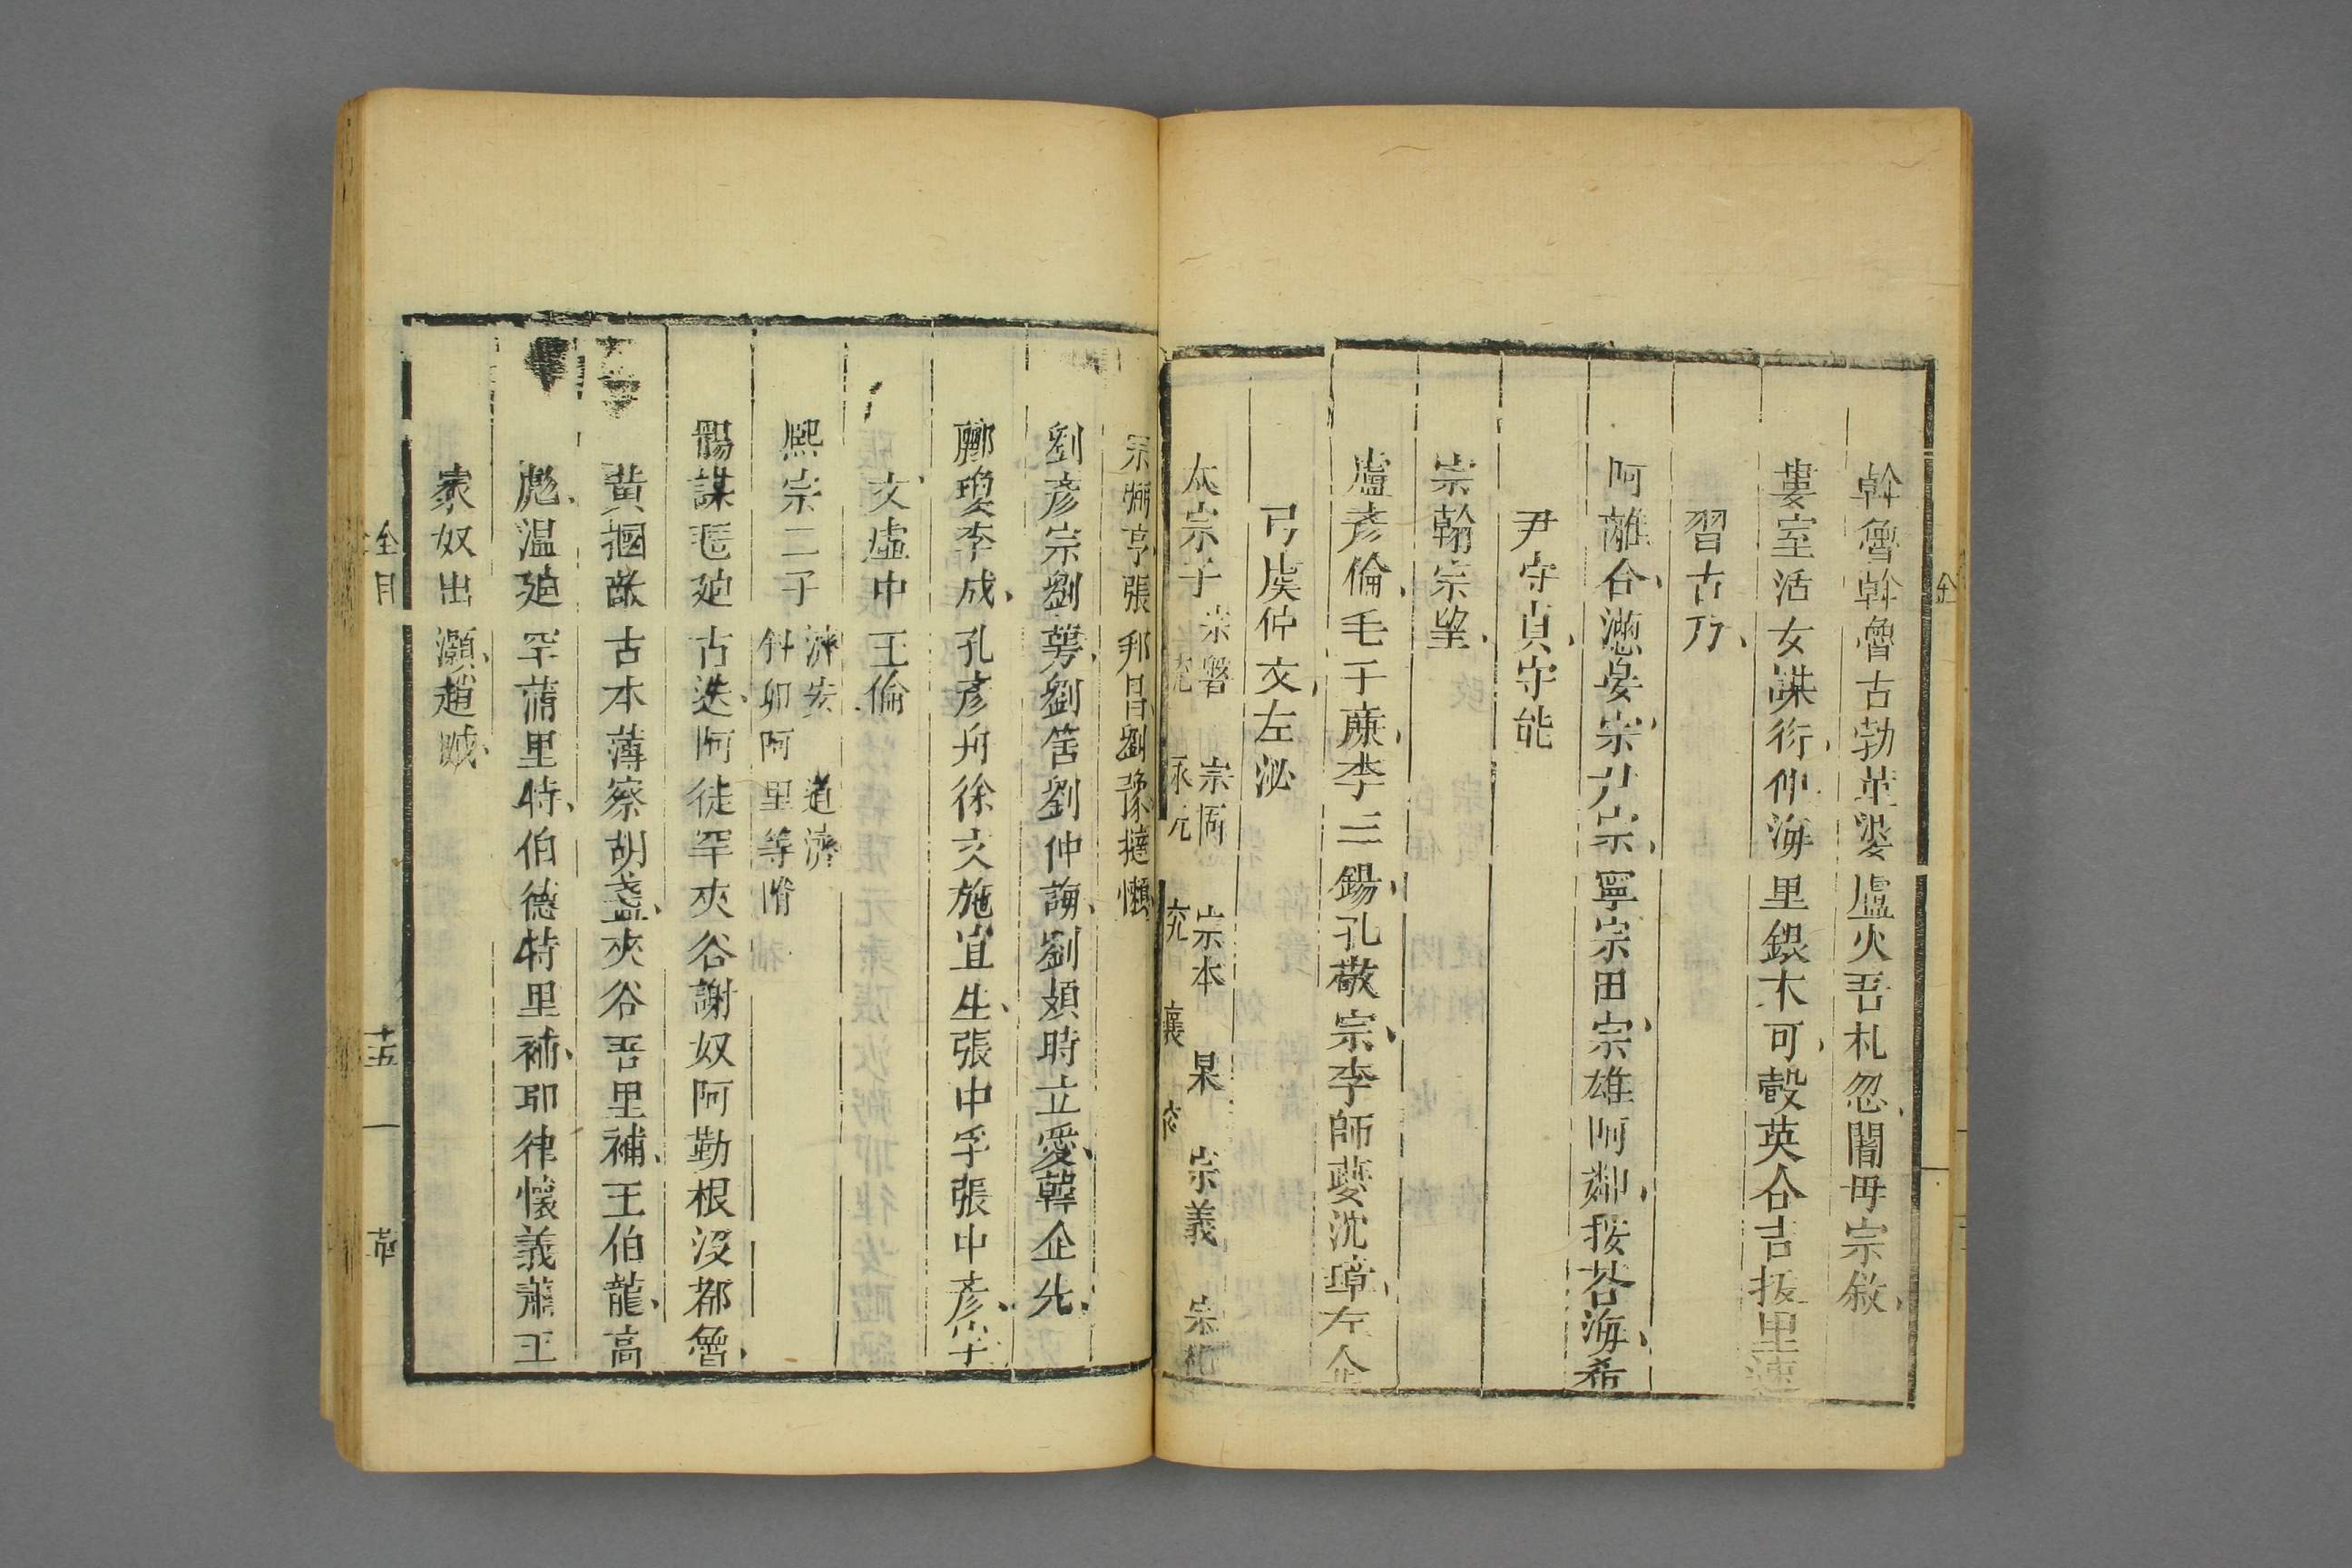 斡魯斡魯古勃菫婆盧火吾札忽闍母宗敘
婁室活女謀衍仲海里銀木可彀英仝吉拔里速
習古乃
阿離合懣晏宗尹宗寧宗田宗雄阿鄰按荅海希
尹守貞守能
宗翰宗望
盧彥倫毛子廉李三錫孔敬宗李師夔沈璋左企
弓虞仲文左泌
太宗子 宗磐 宗固 宗本 杲 宗義
宗弼亨張邦昌劉豫撻懶
劉彥宗劉萼劉筈劉仲誨劉頍時立愛韓企先
酈瓊李成孔彥舟徐文施宜生張中孚張中彥宇
文虛中王倫
熙宗二子 濟安 道濟
斜卯阿里等附
鶻謀琶廸古迭阿徒罕夾谷謝奴阿勒根沒都魯
黃摑敵古本薄察胡盞夾谷吾里補王伯龍高
彪温廸罕蒲里特伯德特里補耶律懷義蕭王
家奴出灝趙賊
金目
十五